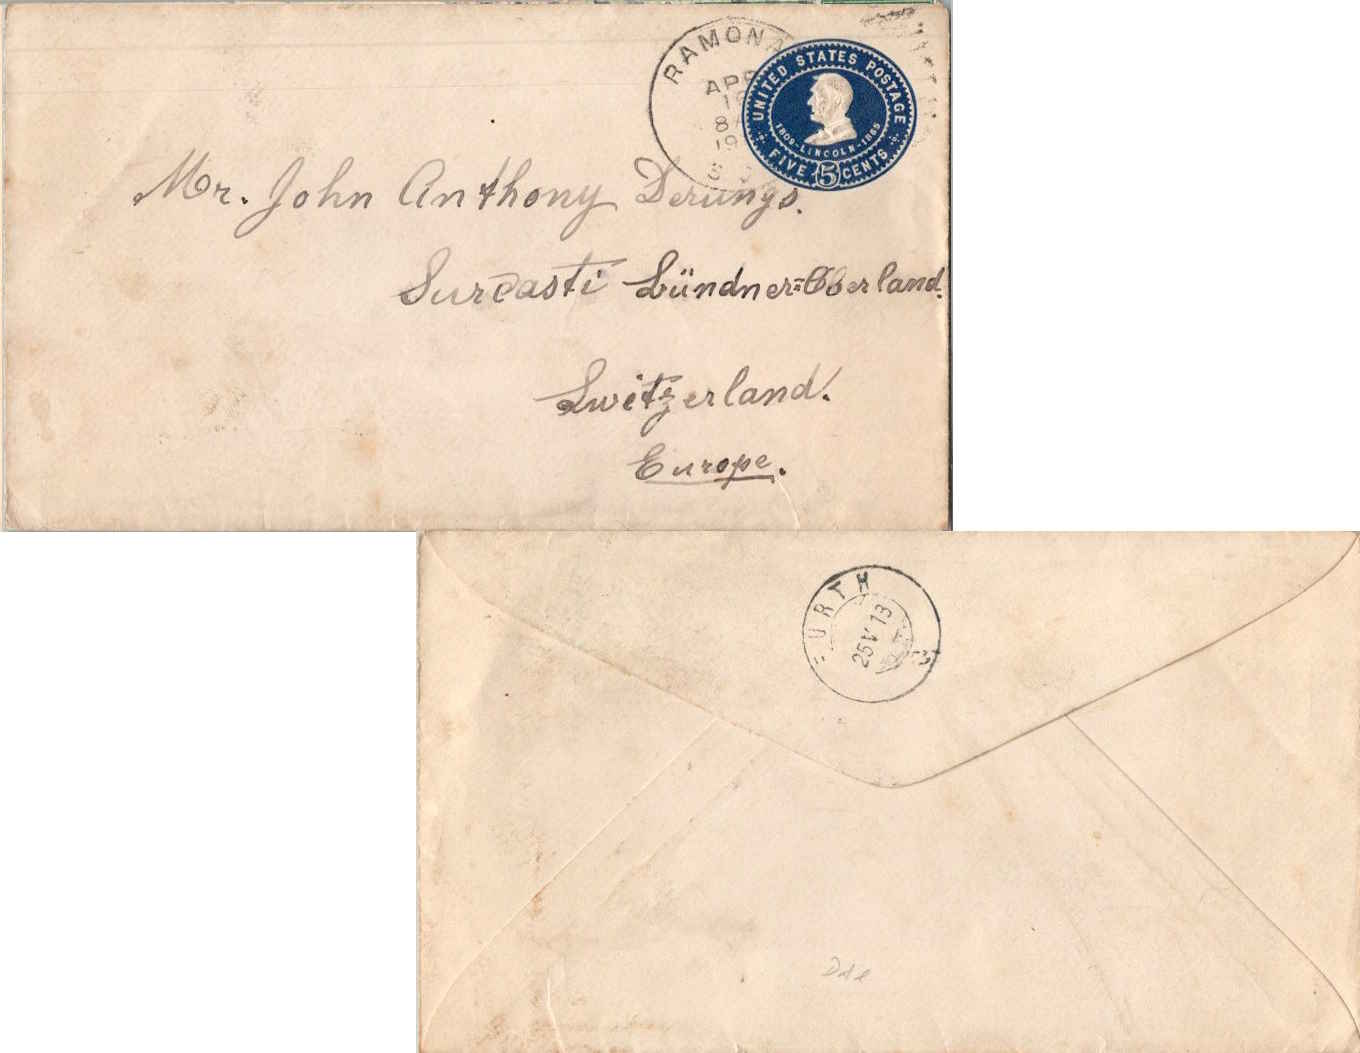 RAMONA
APR
8
19
S
UNITED STATES POSTAGE
1809-LINCOLN-1865
FIVE 5 CENTS
Mr. John Anthony Derungs.
Surcasti Bündner=Oberland.
Switzerland.
Europe.
FURTH
25 V 13